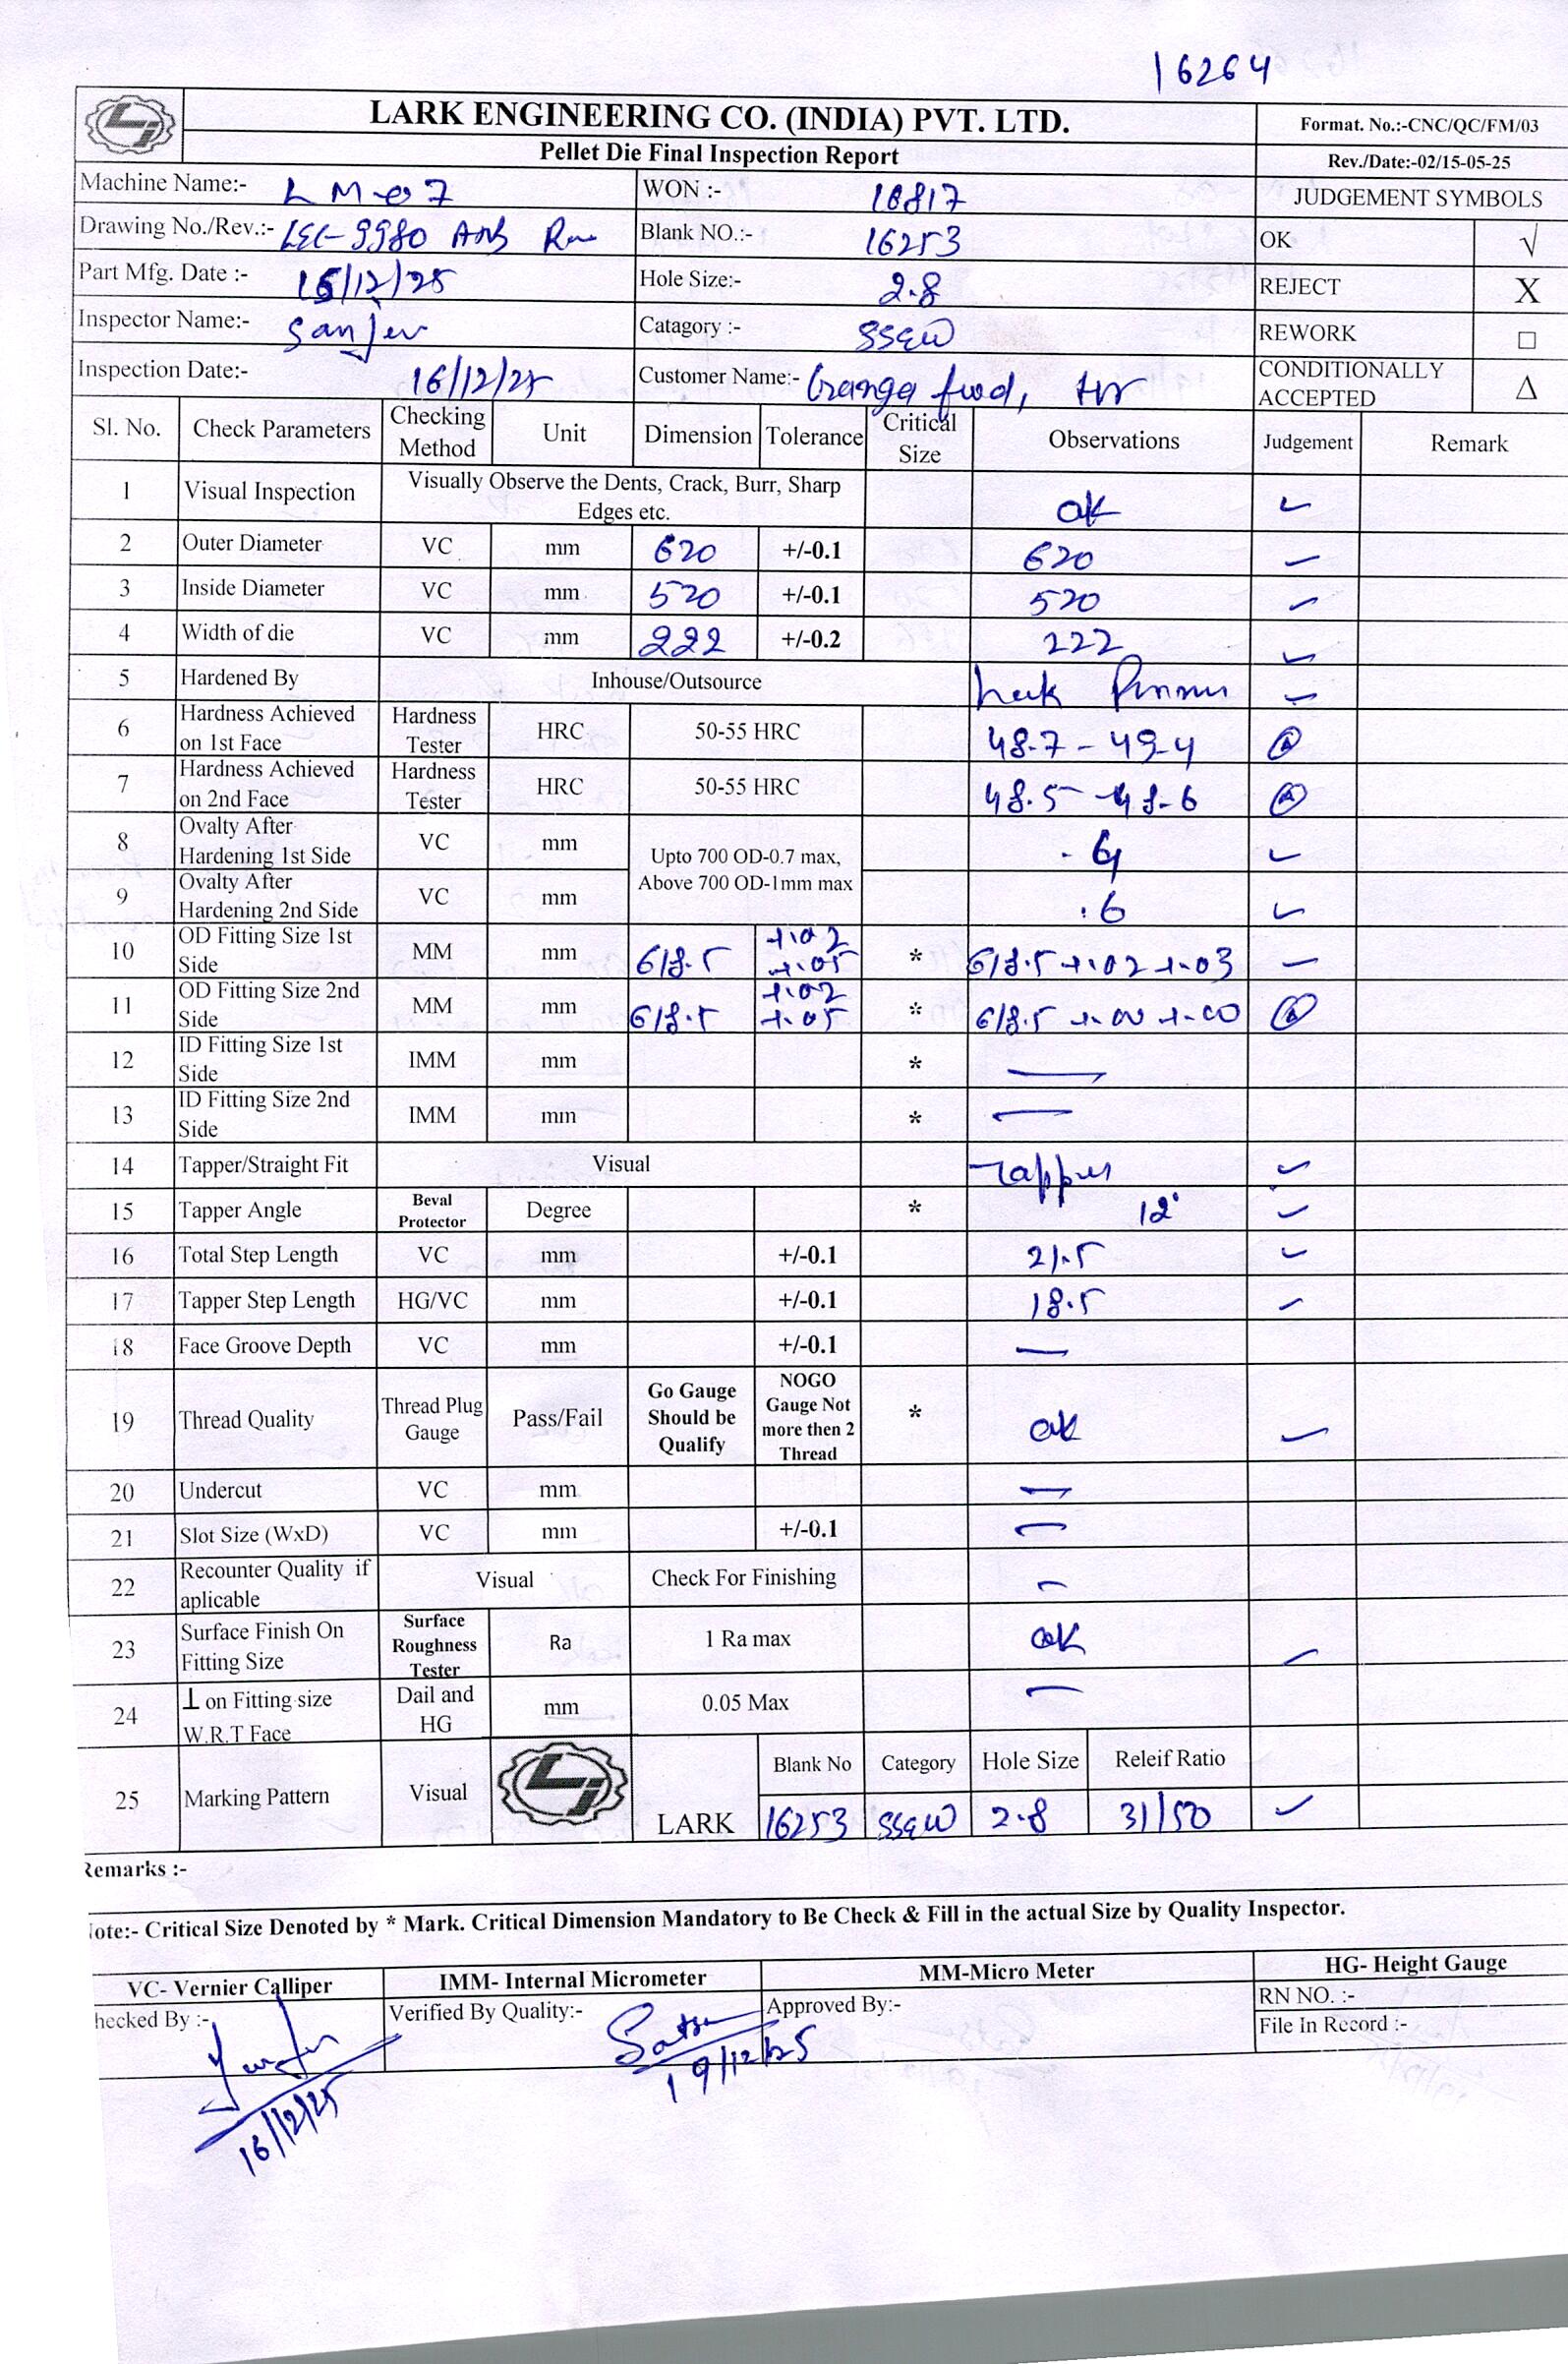 16264
LARK ENGINEERING CO. (INDIA) PVT. LTD.
Format. No.:-CNC/QC/FM/03
Pellet Die Final Inspection Report
Rev./Date:-02/15-05-25
Machine Name:- LM-07 WON :- 16817 JUDGEMENT SYMBOLS
Drawing No./Rev.:- LEC-9980 Blank NO.:- 16253 OK √
Part Mfg. Date :- 15/12/25 Hole Size:- 2.8 REJECT X
Inspector Name:- Sanjev Catagory :- SSEW REWORK □
Inspection Date:- 16/12/25 Customer Name:- Ganga food, CONDITIONALLY ACCEPTED Δ
Sl. No. Check Parameters Checking Method Unit Dimension Tolerance Critical Size Observations Judgement Remark
1 Visual Inspection Visually Observe the Dents, Crack, Burr, Sharp Edges etc. ok ✓
2 Outer Diameter VC mm 620 +/-0.1 620 ✓
3 Inside Diameter VC mm 520 +/-0.1 520 ✓
4 Width of die VC mm 222 +/-0.2 222 ✓
5 Hardened By Inhouse/Outsource ✓
6 Hardness Achieved on 1st Face Hardness Tester HRC 50-55 HRC 48.7 - 49.4
7 Hardness Achieved on 2nd Face Hardness Tester HRC 50-55 HRC 48.5 - 48.6
8 Ovalty After Hardening 1st Side VC mm Upto 700 OD-0.7 max, Above 700 OD-1mm max ✓
9 Ovalty After Hardening 2nd Side VC mm .6 ✓
10 OD Fitting Size 1st Side MM mm 618.5 +.02 +.05 * 618.5 +.02 +.03 ✓
11 OD Fitting Size 2nd Side MM mm 618.5 +.02 +.05 * 618.5 +.00 +.00
12 ID Fitting Size 1st Side IMM mm * —
13 ID Fitting Size 2nd Side IMM mm * —
14 Tapper/Straight Fit Visual Tapper ✓
15 Tapper Angle Beval Protector Degree * 12° ✓
16 Total Step Length VC mm +/-0.1 21.5 ✓
17 Tapper Step Length HG/VC mm +/-0.1 18.5 ✓
18 Face Groove Depth VC mm +/-0.1 —
19 Thread Quality Thread Plug Gauge Pass/Fail Go Gauge Should be Qualify NOGO Gauge Not more then 2 Thread * ok ✓
20 Undercut VC mm —
21 Slot Size (WxD) VC mm +/-0.1 —
22 Recounter Quality if aplicable Visual Check For Finishing —
23 Surface Finish On Fitting Size Surface Roughness Tester Ra 1 Ra max ok ✓
24 ⊥ on Fitting size W.R.T Face Dail and HG mm 0.05 Max —
25 Marking Pattern Visual LARK Blank No Category Hole Size Releif Ratio
16253 SSEW 2.8 31/50 ✓
Remarks :-
Note:- Critical Size Denoted by * Mark. Critical Dimension Mandatory to Be Check & Fill in the actual Size by Quality Inspector.
VC- Vernier Calliper IMM- Internal Micrometer MM-Micro Meter HG- Height Gauge
hecked By :- Verified By Quality:- Approved By:- RN NO. :-
File In Record :-
16/12/25 19/12/25